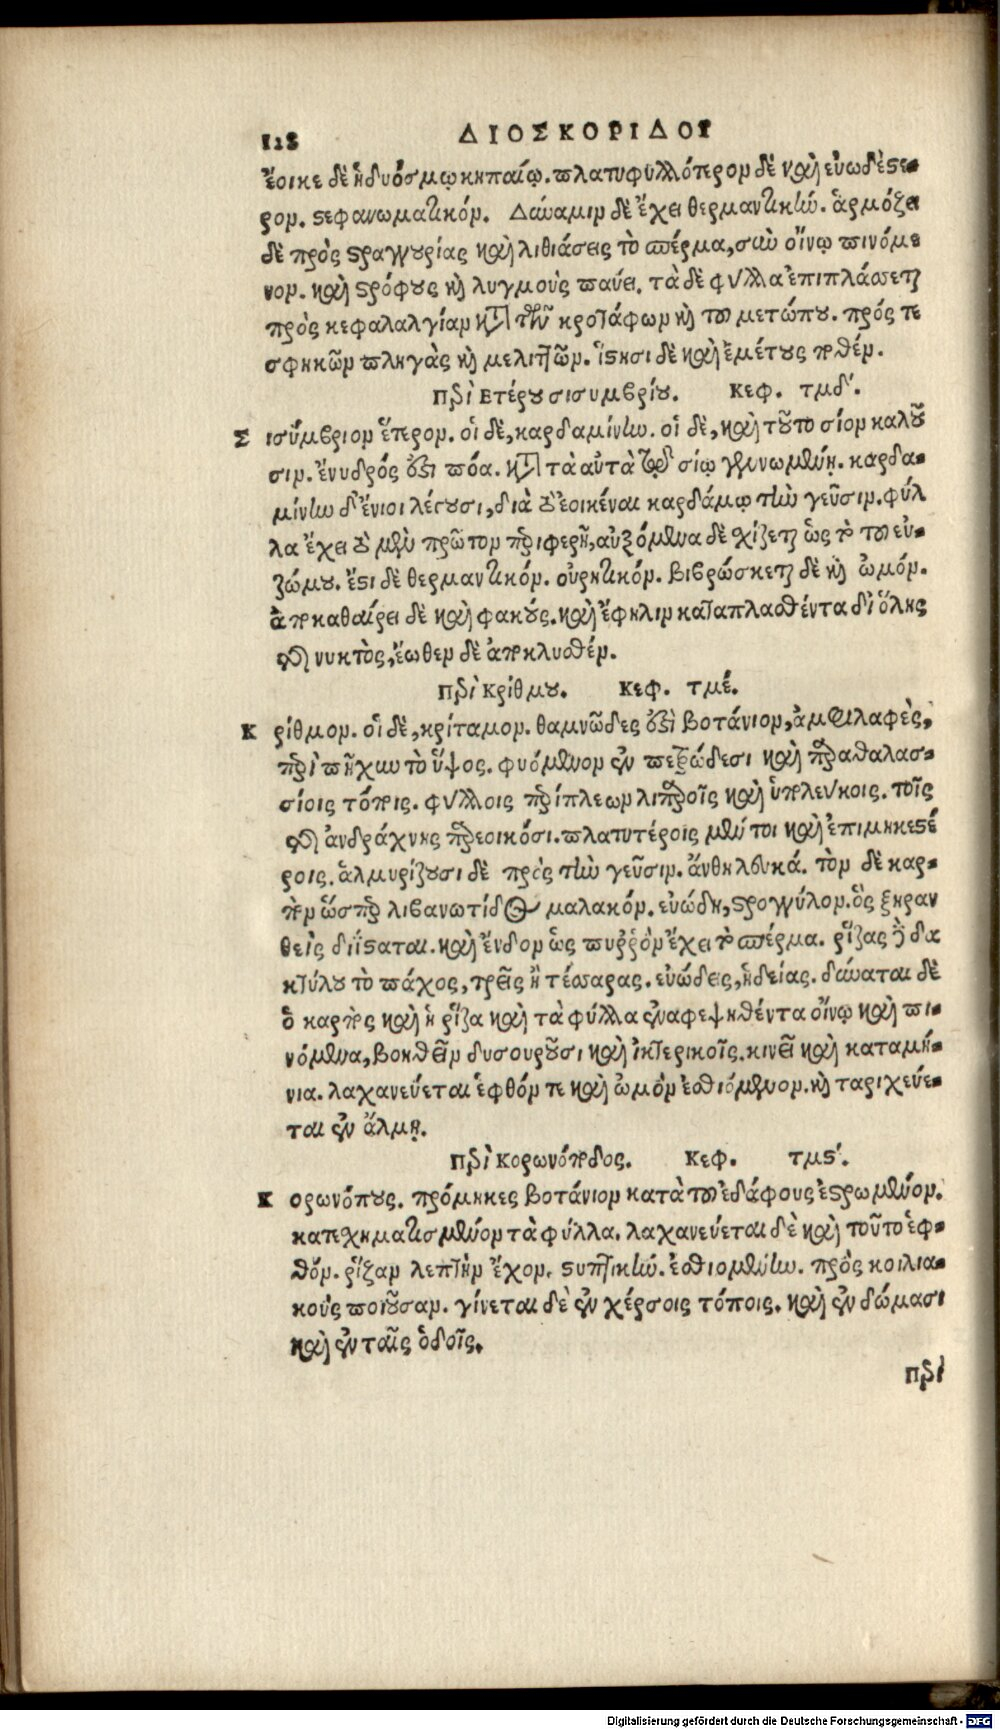 128 ΔΙΟΣΚΟΡΙΔΟΥ
ἔοικε δὲ ἡδυόσμῳ κηπαίῳ. πλατυφυλλότερον δὲ καὶ εὐωδέστε-
ρον. στεφανωματικόν. Δύναμιν δὲ ἔχει θερμαντικήν. ἁρμόζει
δὲ πρὸς στραγγουρίας καὶ λιθιάσεις τὸ σπέρμα, σὺν οἴνῳ πινόμε-
νον. καὶ στρόφους καὶ λυγμοὺς παύει. τὰ δὲ φύλλα ἐπιπλάσσεται
πρὸς κεφαλαλγίαν κατὰ τῶν κροτάφων καὶ τοῦ μετώπου. πρός τε
σφηκῶν πληγὰς καὶ μελιττῶν. ἵστησι δὲ καὶ ἐμέτους ποθέν.
Περὶ Ετέρου σισυμβρίου. Κεφ. τμδ´.
Σ ισύμβριον ἕτερον. οἱ δὲ, καρδαμίνην. οἱ δὲ, καὶ τοῦτο σίον καλοῦ
σιν. ἔνυδρός ἐστι πόα. κατὰ τὰ αὐτὰ τῷ σίῳ γεινωμένη. καρδα-
μίνην δ' ἔνιοι λέγουσι, διὰ τὸ ἐοικέναι καρδάμῳ τὴν γεῦσιν. φύλ
λα ἔχει τὸ μὲν πρῶτον περιφερῆ, αὐξόμενα δὲ σχίζεται ὡς τὸ τοῦ εὐ-
ζώμου. ἔστι δὲ θερμαντικόν. οὐρητικόν. βιβρώσκεται δὲ καὶ ὠμόν.
ἀποκαθαίρει δὲ καὶ φακούς. καὶ ἔφηλιν καταπλασθέντα δι' ὅλης
τῆς νυκτὸς, ἕωθεν δὲ ἀποκλυσθέν.
Περὶ Κρίθμου. Κεφ. τμέ.
Κ ρίθμον. οἱ δὲ, κρίταμον. θαμνῶδες ἐστὶ βοτάνιον, ἀμφιλαφὲς,
περὶ πῆχυν τὸ ὕψος. φυόμενον ἐν πετρώδεσι καὶ παραθαλασ-
σίοις τόποις. φύλλοις περίπλεων λιπαροῖς καὶ ὑπολεύκοις. τοῖς
τῆς ἀνδράχνης παρεοικόσι. πλατυτέροις μέν τοι καὶ ἐπιμηκεστέ
ροις. ἁλμυρίζουσι δὲ πρὸς τὴν γεῦσιν. ἄνθη λευκά. τὸν δὲ καρ-
πὸν ὥσπερ λιβανωτίδος μαλακόν. εὐώδη, στρογγύλον. ὃς ξηραν
θεὶς διΐσταται. καὶ ἔνδον ὡς πυῤῥὸν ἔχει τὸ σπέρμα. ῥίζας δὲ δα
κτύλου τὸ πάχος, τρεῖς ἢ τέσσαρας. εὐώδεις, ἡδείας. δύναται δὲ
ὁ καρπὸς καὶ ἡ ῥίζα καὶ τὰ φύλλα ἐναφεψηθέντα οἴνῳ καὶ πι-
νόμενα, βοηθεῖν δυσουροῦσι καὶ ἰκτερικοῖς. κινεῖ καὶ καταμή-
νια. λαχανεύεται ἑφθόν τε καὶ ὠμὸν ἐσθιόμενον. καὶ ταριχεύε-
ται ἐν ἅλμῃ.
Περὶ Κορωνόποδος. Κεφ. τμϛ´.
Κ ορωνόπους. πρόμηκες βοτάνιον κατὰ τοῦ ἐδάφους ἐστρωμένον.
κατεσχηματισμένον τὰ φύλλα. λαχανεύεται δὲ καὶ τοῦτο ἑφ-
θόν. ῥίζαν λεπτὴν ἔχον. στυπτικήν. ἐσθιομένην. πρὸς κοιλια-
κοὺς ποιοῦσαν. γίνεται δὲ ἐν χέρσοις τόποις. καὶ ἐν δώμασι
καὶ ἐν ταῖς ὁδοῖς.
Περὶ
Digitalisierung gefördert durch die Deutsche Forschungsgemeinschaft - DFG